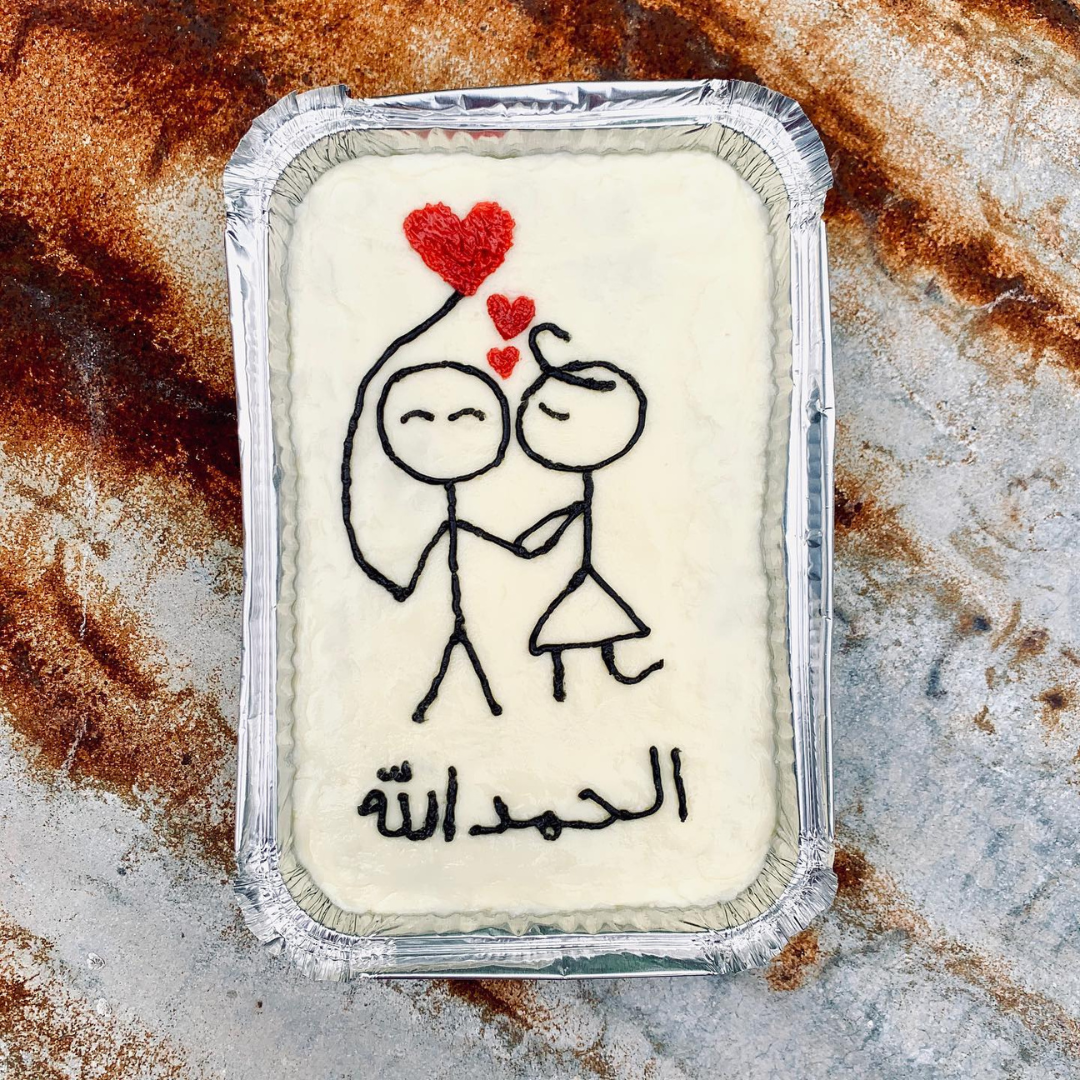 الحمد اللّه